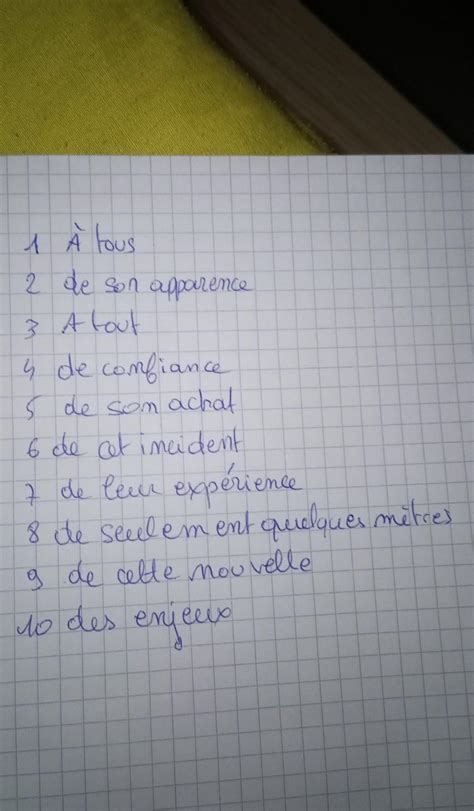 1 À tous
2 de son apparence
3 A tout
4 de confiance
5 de son achat
6 de cet incident
7 de leur expérience
8 de seulement quelques mètres
9 de cette nouvelle
10 des enjeux